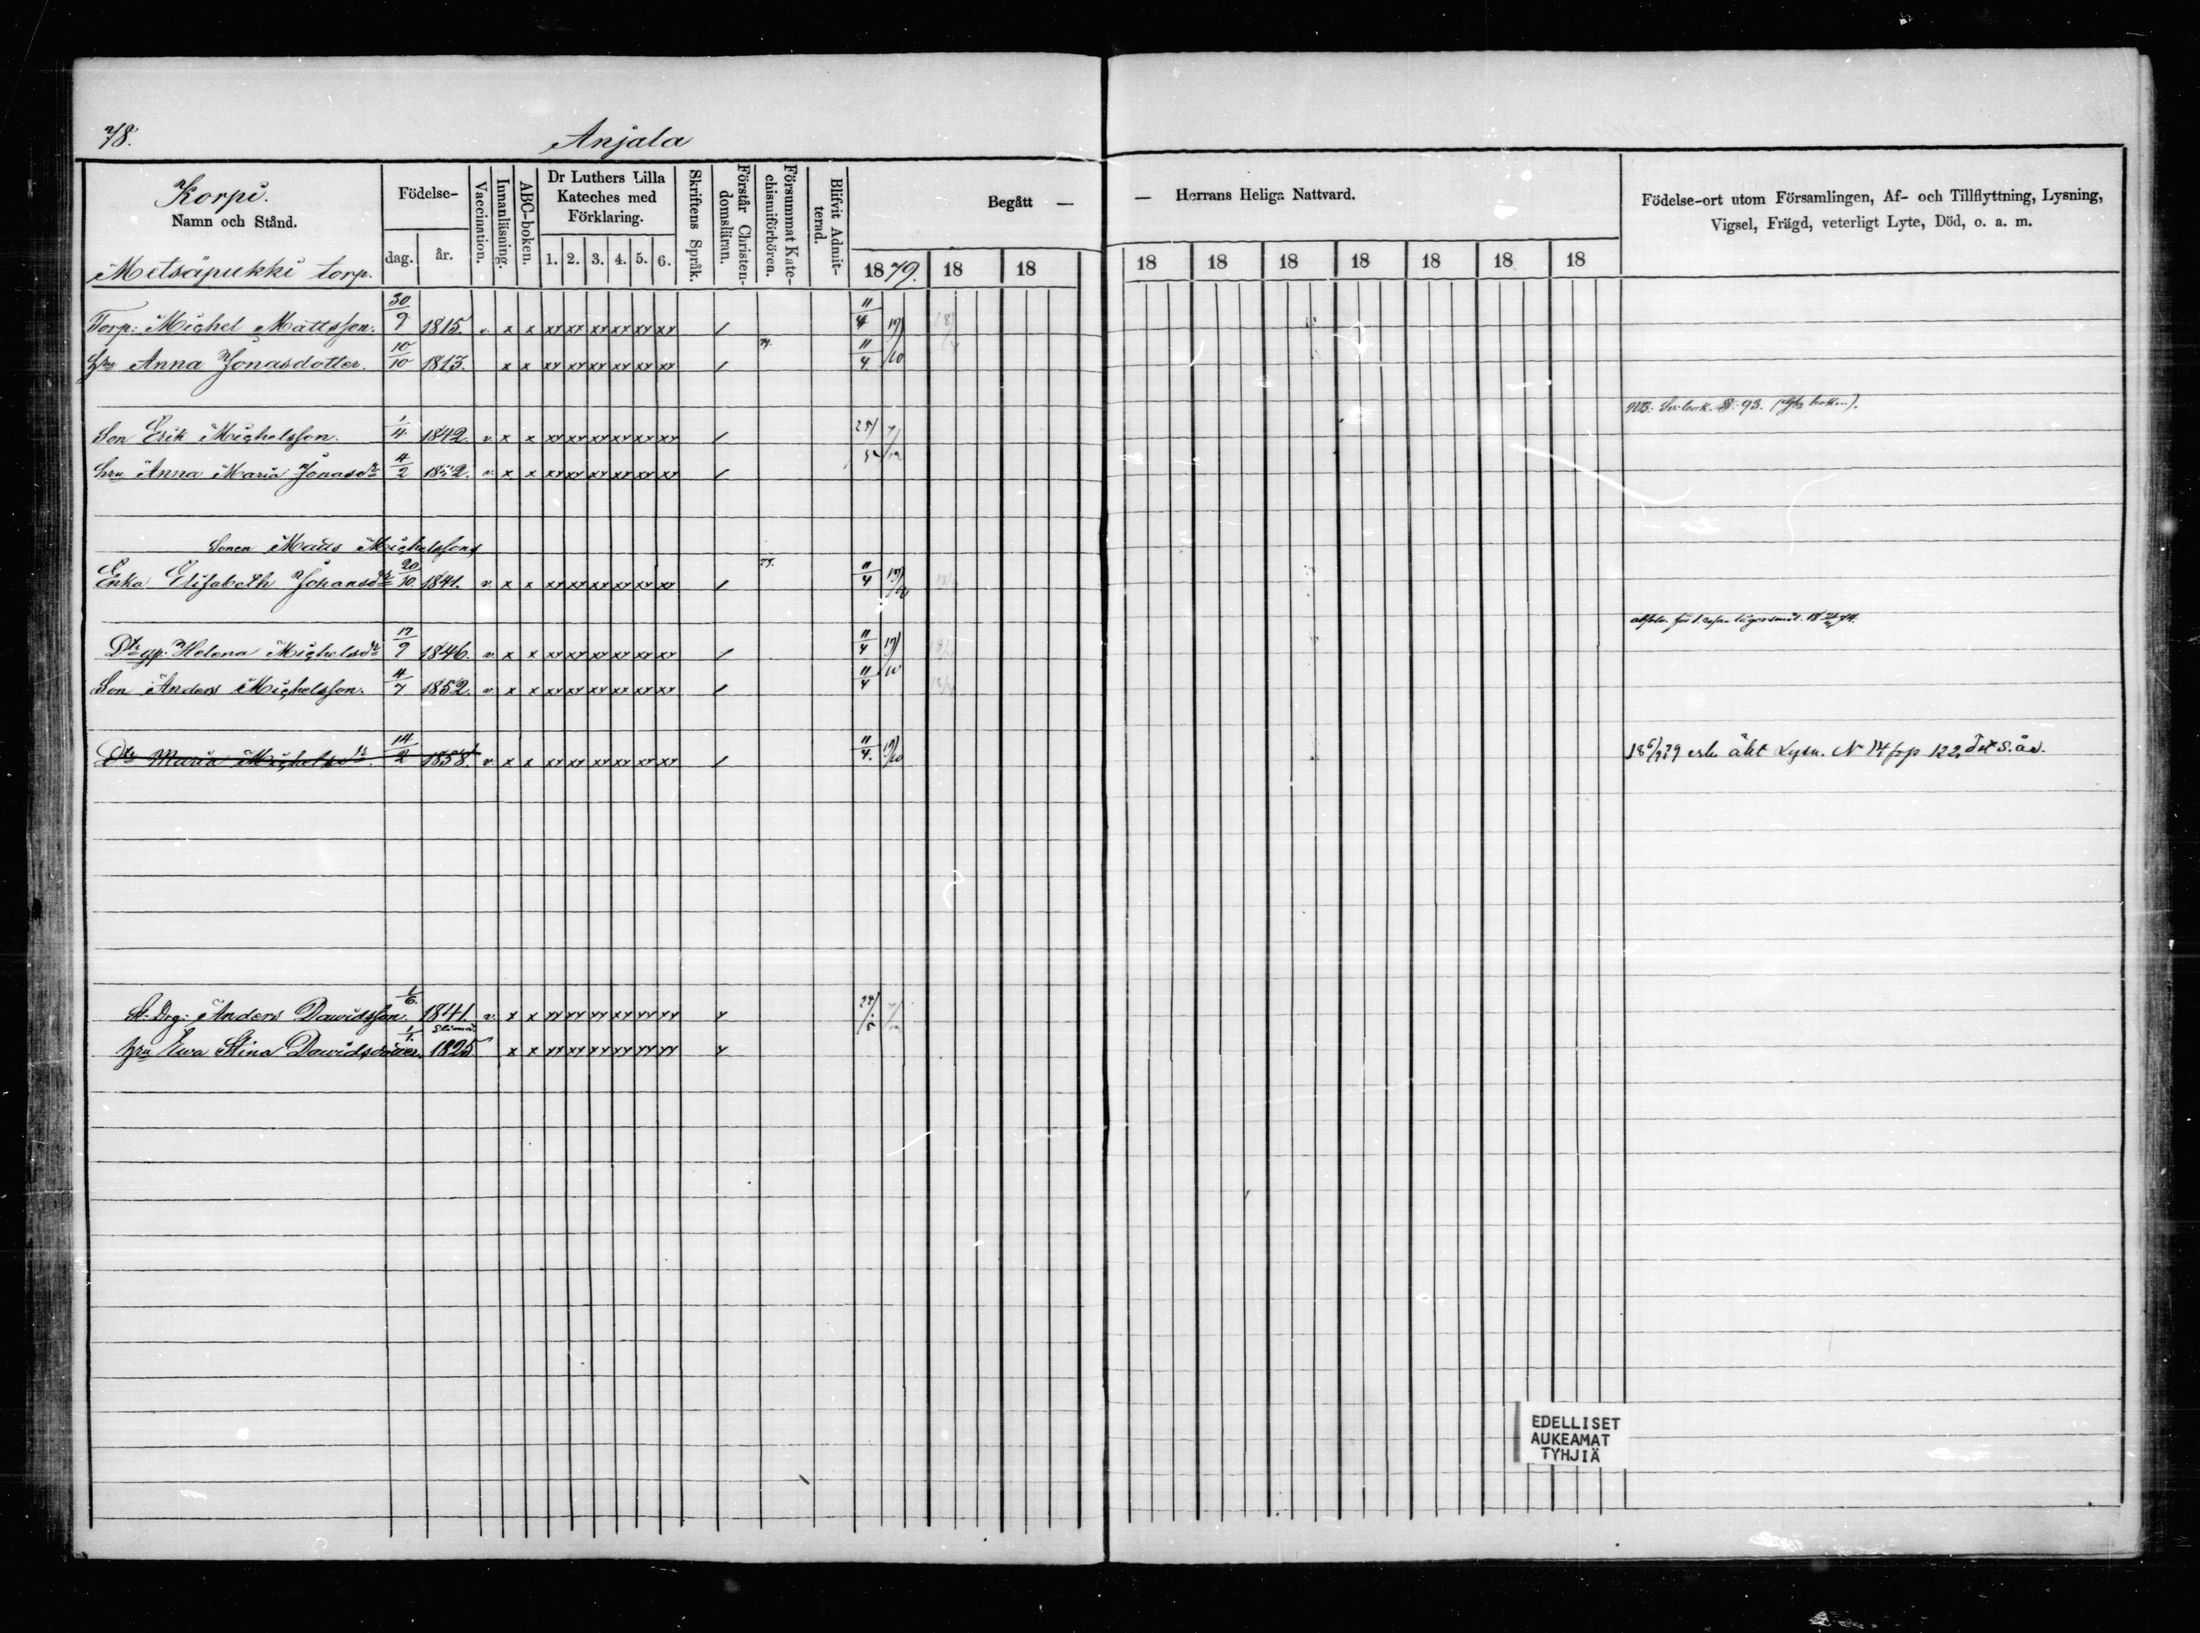 78.
Anjala
Korpi.
Namn och Stånd.
Metsäpukki torp.
Födelse-
dag.
år.
Vaccination.
Innanläsning.
ABC-boken.
Dr Luthers Lilla
Kateches med
Förklaring.
1. 2. 3. 4. 5. 6.
Skriftens Språk.
Förstår Christen-
domsläran.
Försummat Kate-
chismiförhören.
Blifvit Admit-
terad.
Begått —
1879. 18 18
— Herrans Heliga Nattvard.
18 18 18 18 18 18 18
Födelse-ort utom Församlingen, Af- och Tillflyttning, Lysning,
Vigsel, Frägd, veterligt Lyte, Död, o. a. m.
Torp: Michel Mattsson. 30/9 1815. v. x x xx xx xx xx xx xx / 11/4 19/10
Hru Anna Jonasdotter. 10/10 1813. x x xx xx xx xx xx xx / 11/4
93.
Son Erik Michelsson. 1/4 1842. v x x xx xx xx xx xx xx /
hru Anna Maria Jonasdr 4/2 1852. v. x x xx xx xx xx xx xx /
Sonen Mats Michelssons
Enka Elisabeth Johansdr 20/10. 1841. v. x x xx xx xx xx xx xx / 11/4 19/10
Dr gp. Helena Michelsdr 17/9 1846. v. x x xx xx xx xx xx xx / 11/4 19/10
Son Anders Michelsson. 4/7 1852. v. x x xx xx xx xx xx xx / 11/4
Dr Maria Michelsdr 14/2 1858. v. x x xx xx xx xx xx xx / 11/4. 19/10
18 6/7 79 erh. äkt Lysn. N 14 för p 122, det s. år.
St. Drg: Anders Dawidsson. 1/6. 1841. v. x x xx xx xx xx xx xx x 24/5
Elimä.
hru Ewa Stina Dawidsdotter. 1/1. 1825 x x xx xx xx xx xx xx x
EDELLISET
AUKEAMAT
TYHJIÄ